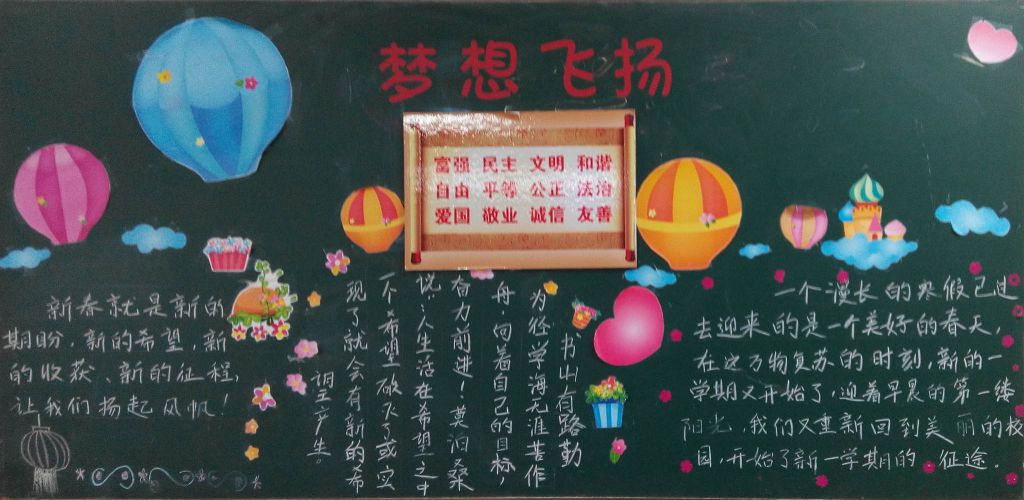 梦想飞扬
富强 民主 文明 和谐
自由 平等 公正 法治
爱国 敬业 诚信 友善
新春就是新的
期盼,新的希望,新
的收获、新的征程,
让我们扬起风帆!
书山有路勤
为径学海无涯苦作
舟,向着自己的目标,
奋力前进!莫泊桑
说:“人生活在希望之中
个希望破灭了或实
现了就会有新的希
望产生。
一个漫长的寒假已过
去迎来的是一个美好的春天,
在这万物复苏的时刻,新的一
学期又开始了,迎着早晨的第一缕
阳光,我们又重新回到美丽的校
园,开始了新一学期的征途。